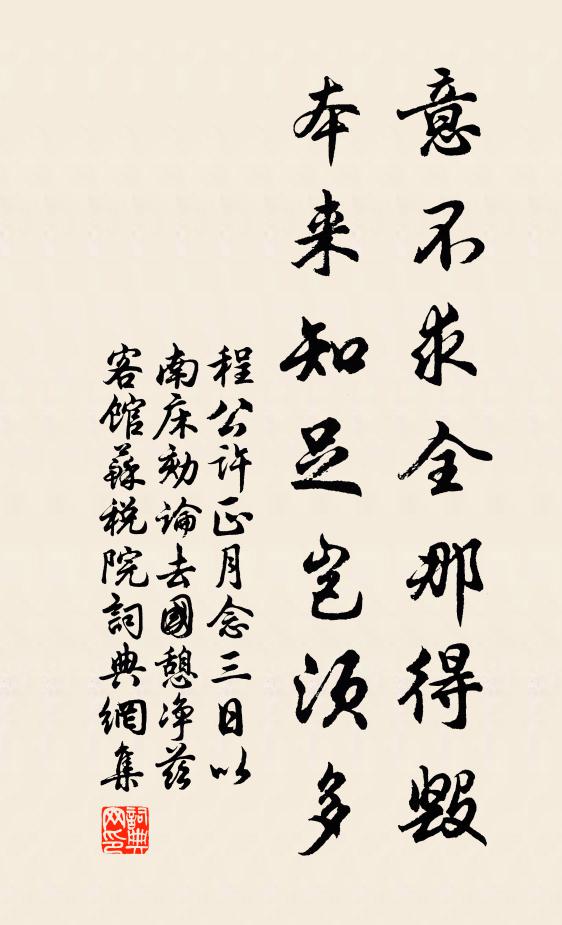 意不求全那得毀
本来知足岂須多
程公許正月念三日以
南床劾論去國憩净慈
客館蘇税院詞典網集
詞典
网印